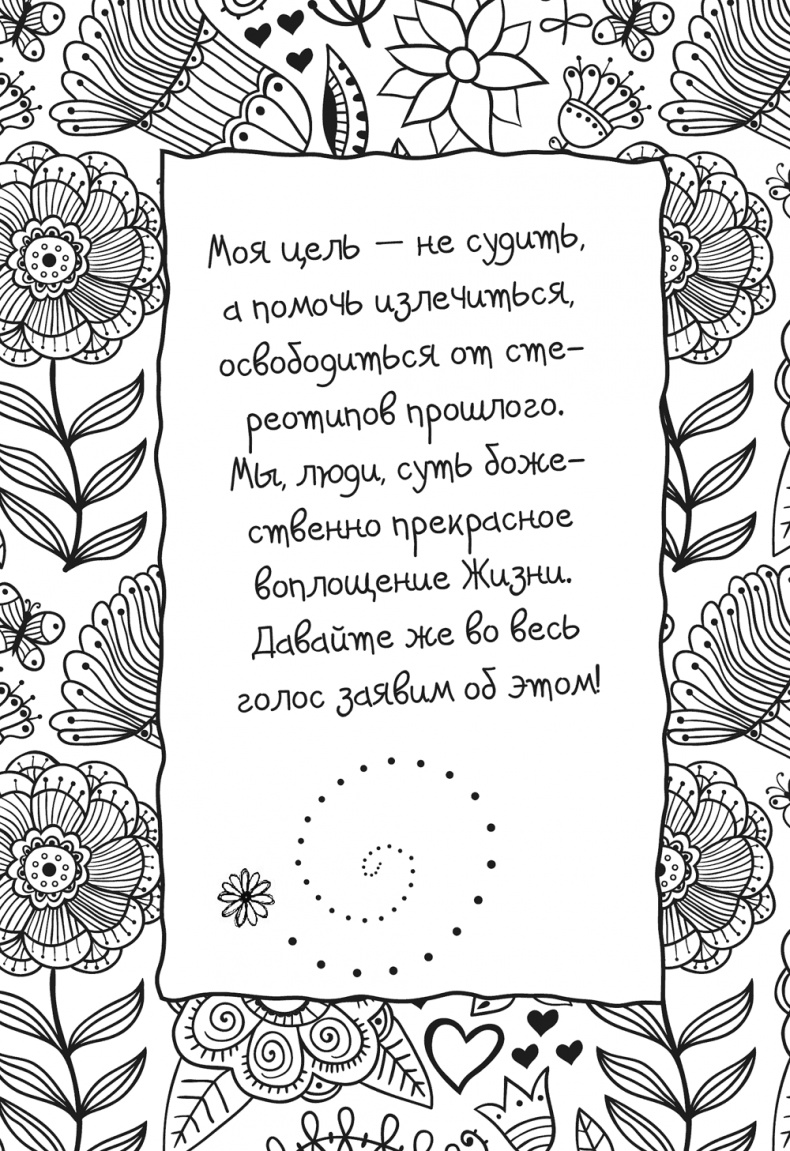 Моя цель — не судить,
а помочь излечиться,
освободиться от сте-
реотипов прошлого.
Мы, люди, суть боже-
ственно прекрасное
воплощение Жизни.
Давайте же во весь
голос заявим об этом!